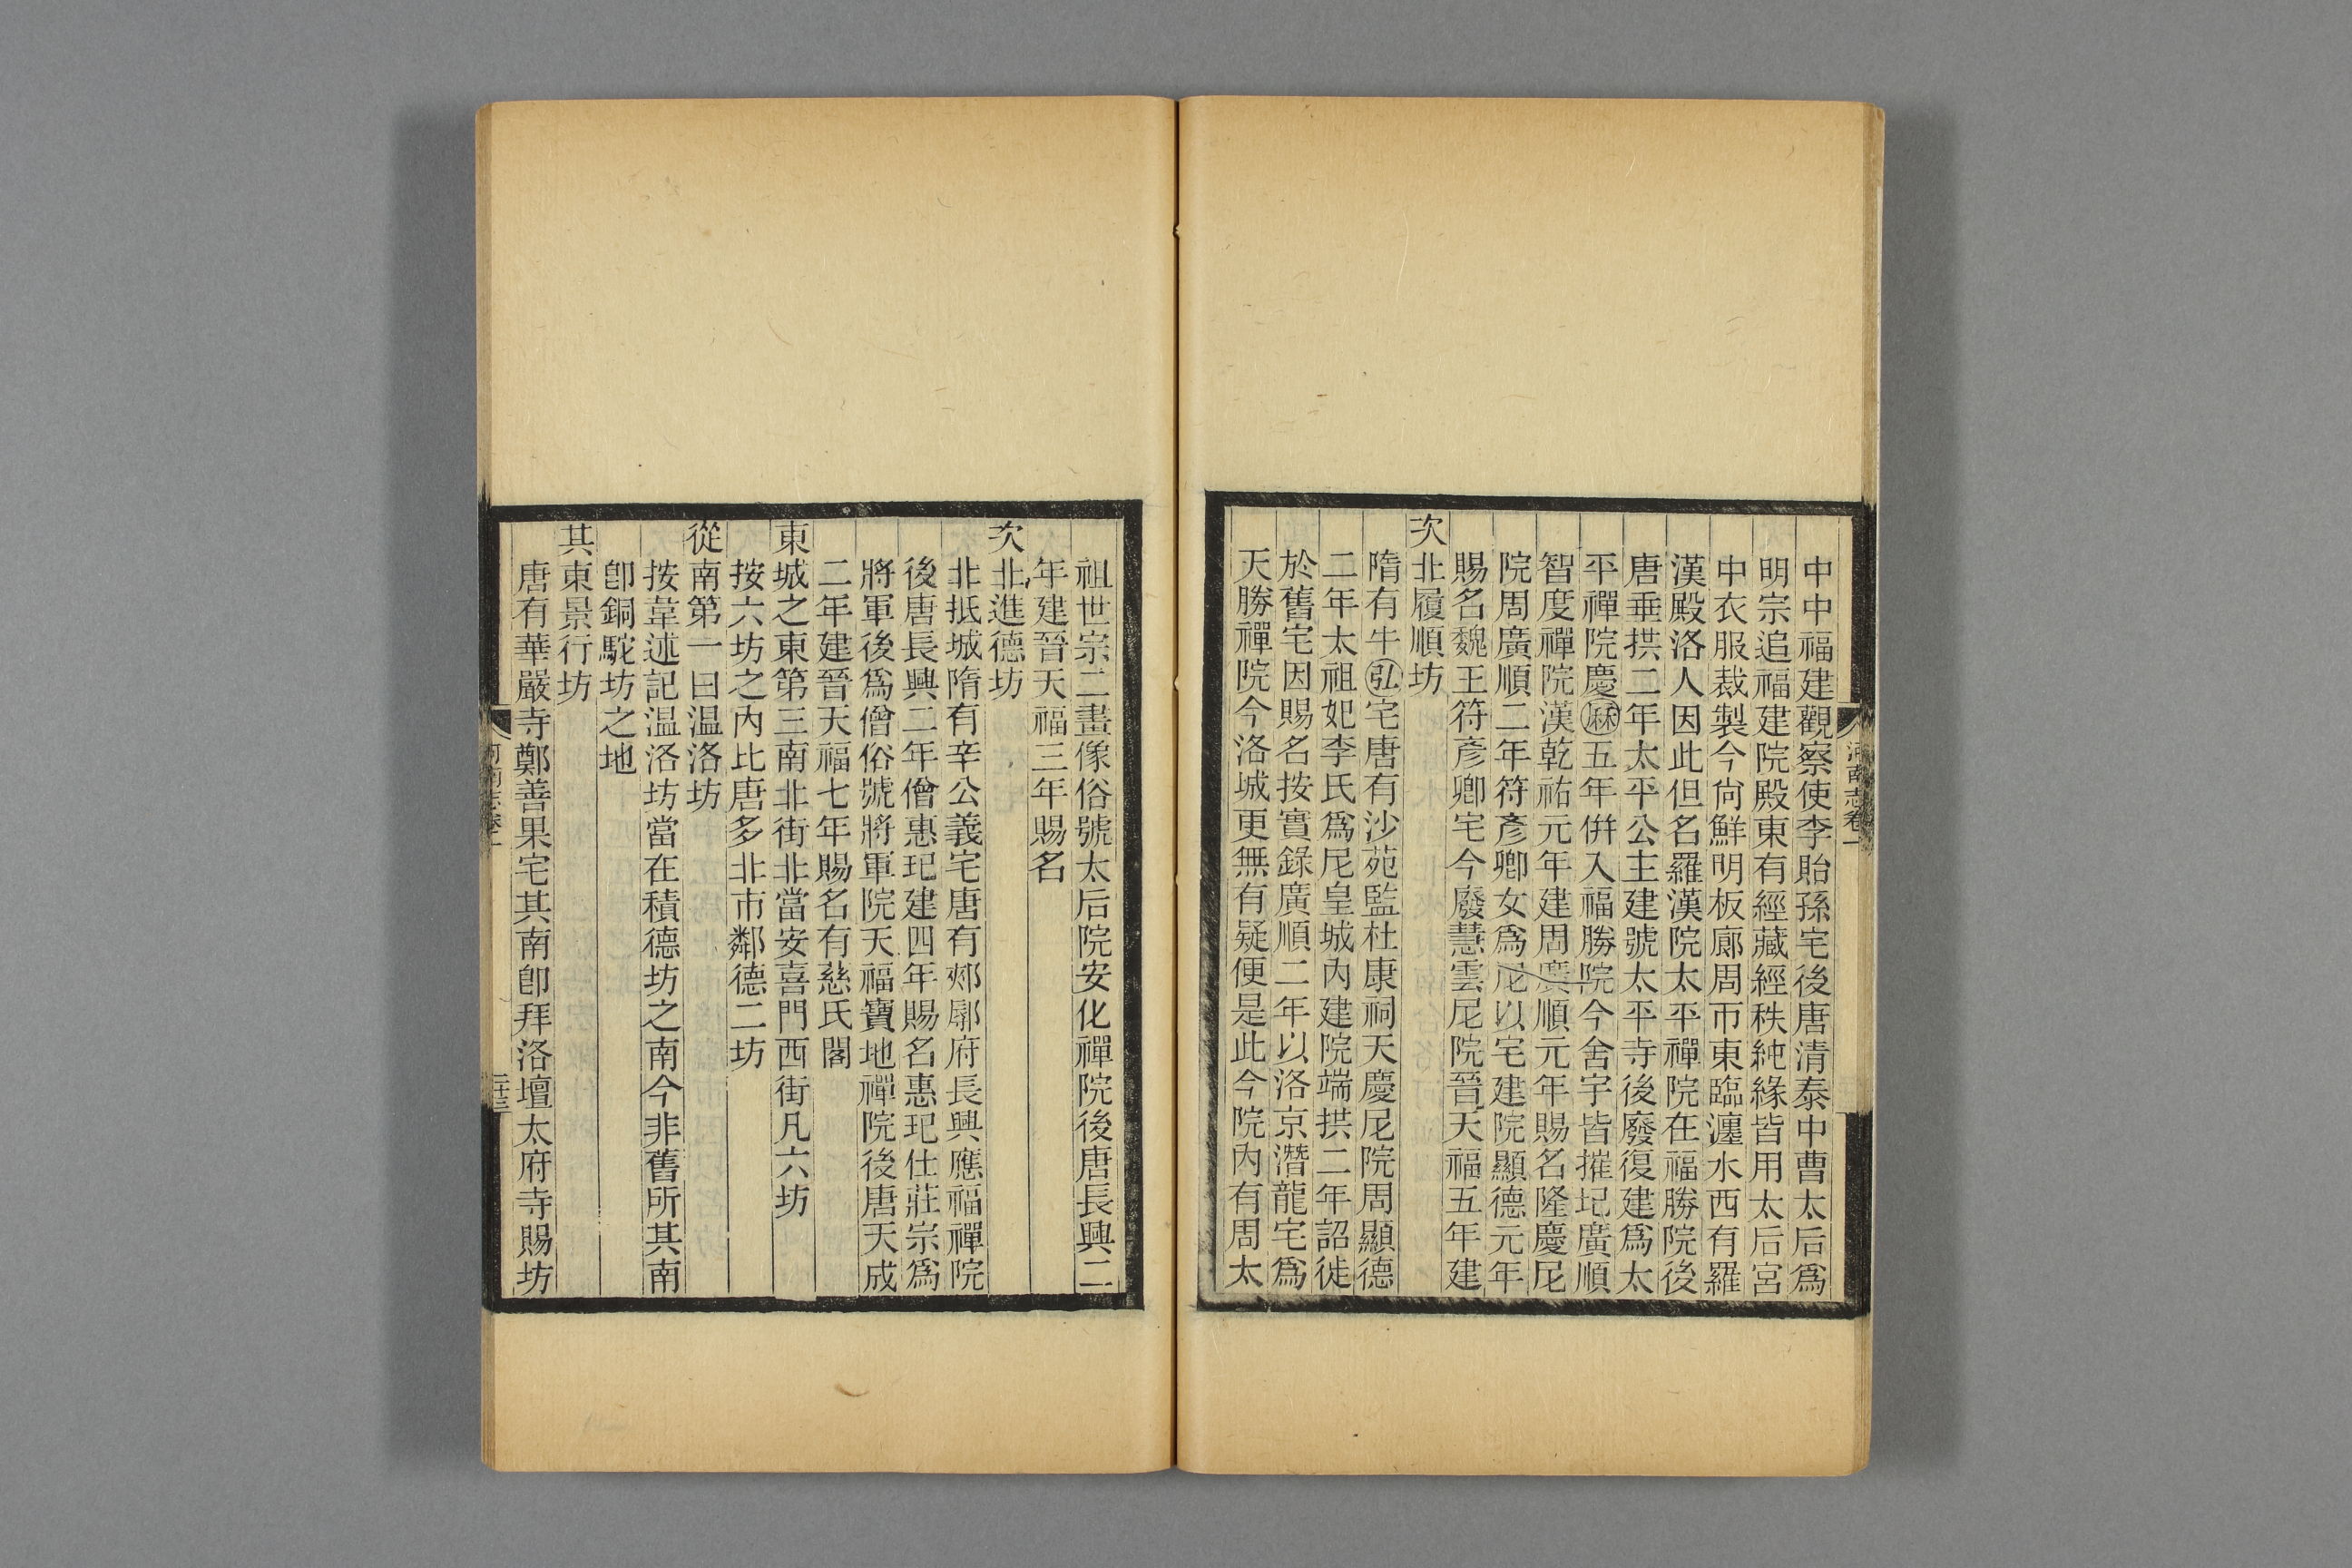 中中福建觀察使李貽孫宅後唐清泰中曹太后爲
明宗追福建院殿東有經藏經秩純緣皆用太后宮
中衣服裁製今尙鮮明板廊周帀東臨瀍水西有羅
漢殿洛人因此但名羅漢院太平禪院在福勝院後
唐垂拱二年太平公主建號太平寺後廢復建爲太
平禪院慶厤五年併入福勝院今舍宇皆摧圮廣順
智度禪院漢乾祐元年建周廣順元年賜名隆慶尼
院周廣順二年符彥卿女爲尼以宅建院顯德元年
賜名魏王符彥卿宅今廢慧雲尼院晉天福五年建
次北履順坊
隋有牛弘宅唐有沙苑監杜康祠天慶尼院周顯德
二年太祖妃李氏爲尼皇城內建院端拱二年詔徙
於舊宅因賜名按實錄廣順二年以洛京潛龍宅爲
天勝禪院今洛城更無有疑便是此今院內有周太
河南志卷一
祖世宗二畫像俗號太后院安化禪院後唐長興二
年建晉天福三年賜名
次北進德坊
北抵城隋有辛公義宅唐有郟鄏府長興應福禪院
後唐長興二年僧惠玘建四年賜名惠玘仕莊宗爲
將軍後爲僧俗號將軍院天福寶地禪院後唐天成
二年建晉天福七年賜名有慈氏閣
東城之東第三南北街北當安喜門西街凡六坊
按六坊之內比唐多北市鄰德二坊
從南第一曰温洛坊
按韋述記温洛坊當在積德坊之南今非舊所其南
卽銅駝坊之地
其東景行坊
唐有華嚴寺鄭善果宅其南卽拜洛壇太府寺賜坊